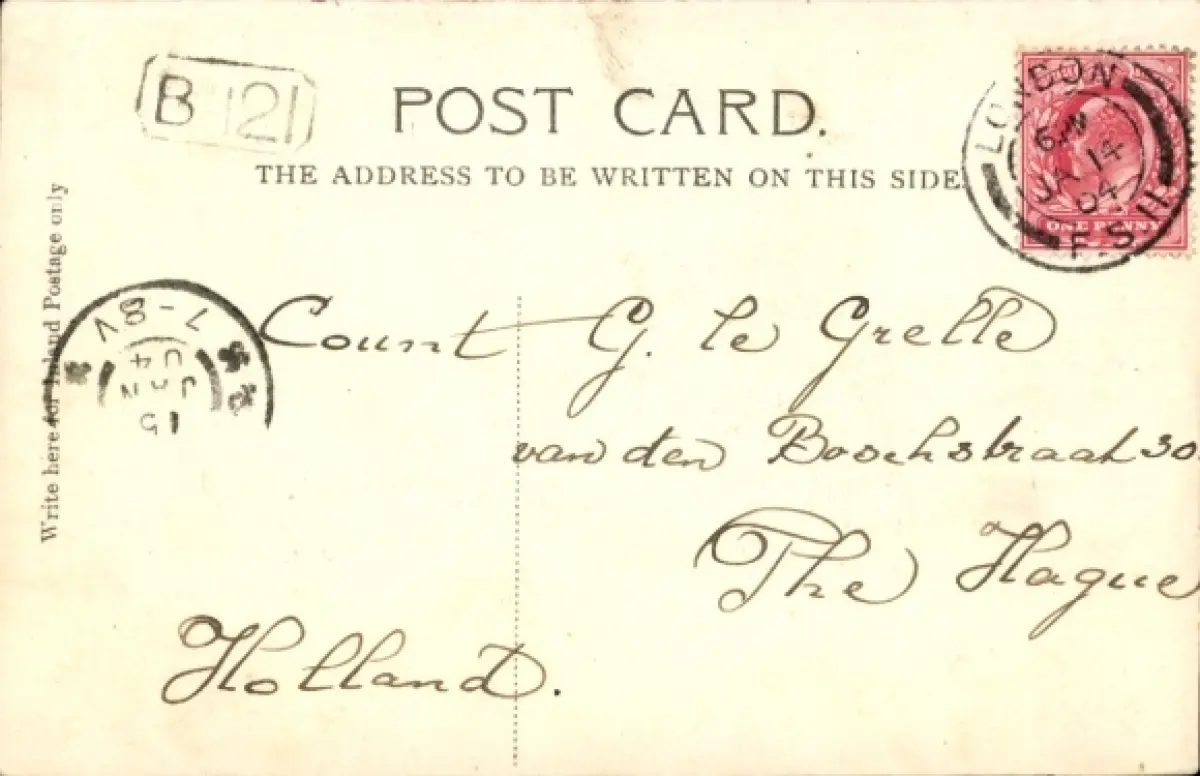 B 121
POST CARD.
THE ADDRESS TO BE WRITTEN ON THIS SIDE.
LONDON
6 PM
JA 14
04
F.S.11
ONE PENNY
Write here for Inland Postage only
7-8V
15
JAN
04
Count G. le Grelle
van den Boschstraat 30.
The Hague
Holland.